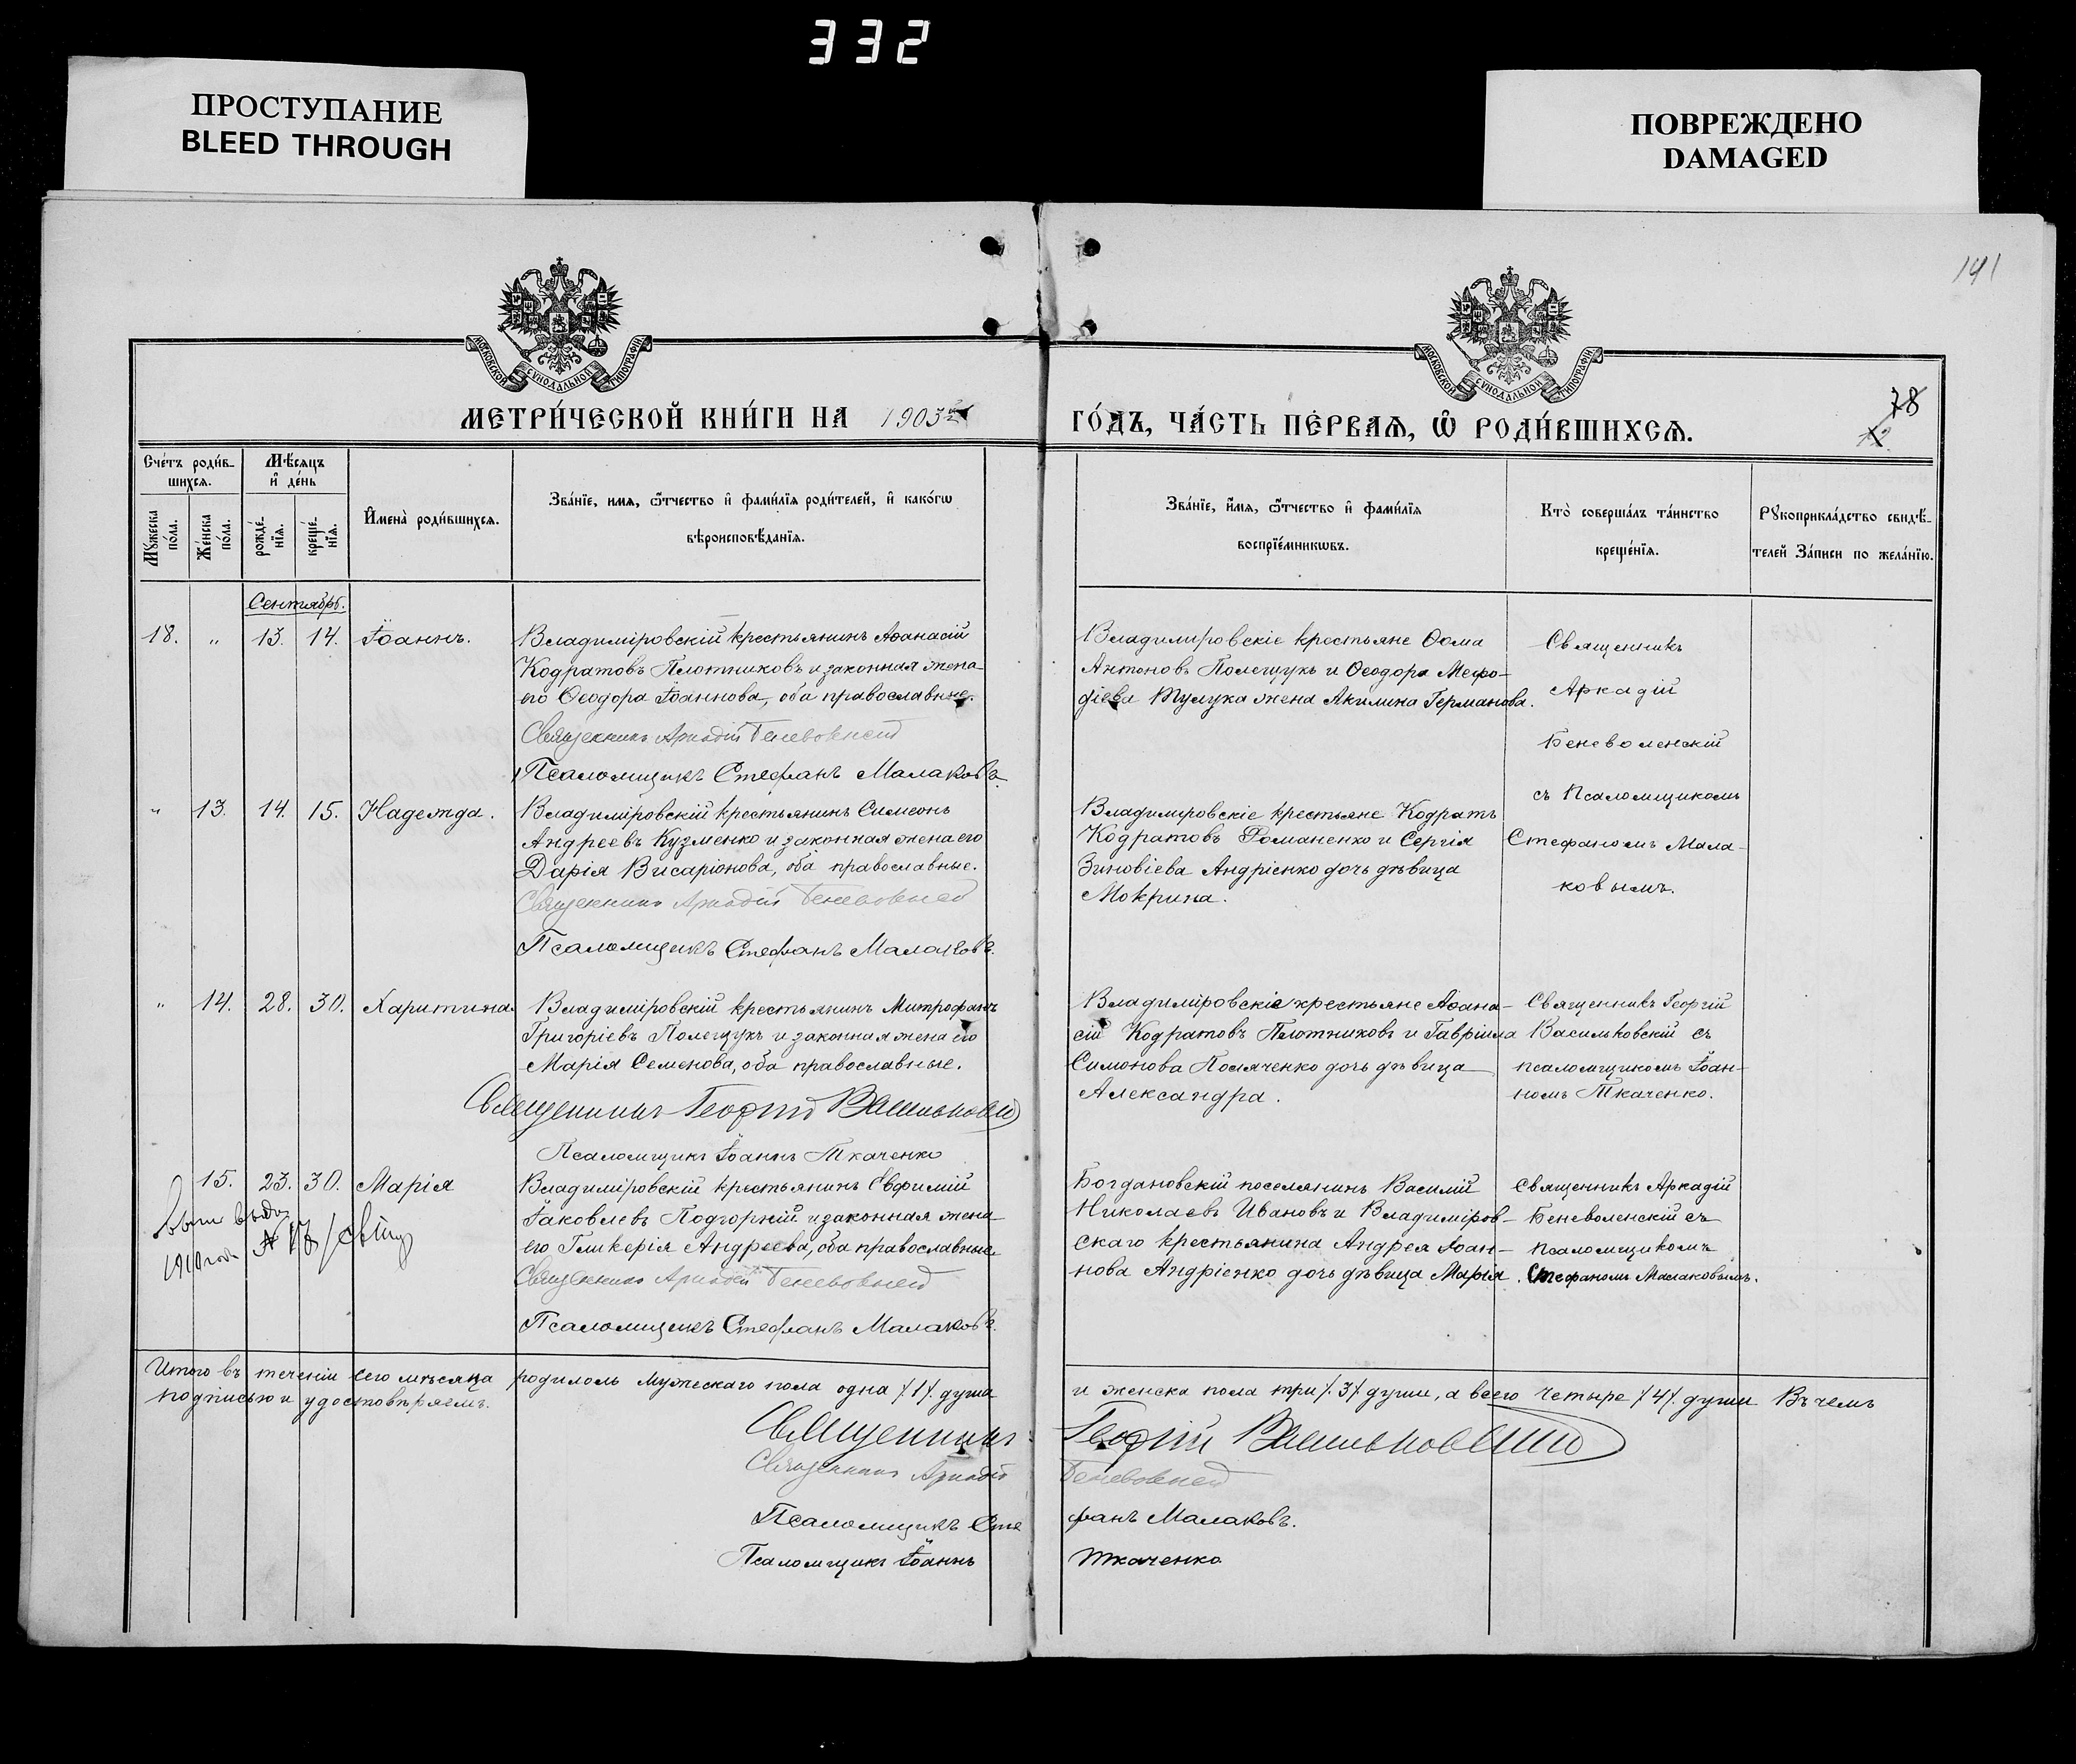 332
ПРОСТУПАНИЕ
BLEED THROUGH
ПОВРЕЖДЕНО
DAMAGED
141
МОСКОВСКОЙ СУНОДАЛЬНОЙ ТИПОГРАФІИ
МОСКОВСКОЙ СУНОДАЛЬНОЙ ТИПОГРАФІИ
МЕТРИ́ЧЕСКОЙ КНИ́ГИ НА 1903й
ГО́ДЪ, ЧА́СТЬ ПЕ́РВАѦ, Ѽ РОДИ́ВШИХСѦ.
78
Сче́тъ роди́в-
шихсѧ.
Мѣ́сѧцъ
и҆ де́нь
Мꙋ́жеска по́ла.
Же́нска по́ла.
рожде́-
нїѧ.
креще́-
нїѧ.
И҆мена̀ роди́вшихсѧ.
Зва́нїе, имѧ, ѻ҆́тчество и҆ фами́лїѧ роди́телей, и҆ како́гѡ
вѣроисповѣ́данїѧ.
Зва́нїе, и҆́мѧ, ѻ҆́тчество и҆ фами́лїѧ
воспрїе́мникѡвъ.
Кто̀ соверша́лъ та́инство
креще́нїѧ.
Рꙋкоприкла́дство свидѣ́-
телей За́писи по жела́нїю.
Сентябрь.
18. „ 13. 14. Іоаннъ.
Владиміровскій крестьянинъ Аѳанасій
Кодратовъ Плотниковъ и законная жена
его Ѳеодора Іоаннова, оба православные.
Священникъ Аркадій Беневоленскій
Псаломщикъ Стефанъ Малаковъ.
Владиміровскіе крестьяне Ѳома
Антоновъ Полещукъ и Ѳеодора Мефо-
діева Тулука жена Акилина Германова.
Священникъ
Аркадій
Беневоленскій
съ Псаломщикомъ
Стефаномъ Мала-
ковымъ.
„ 13. 14. 15. Надежда.
Владиміровскій крестьянинъ Симеонъ
Андреевъ Кузменко и законная жена его
Дарія Висаріонова, оба православные.
Священникъ Аркадій Беневоленскій
Псаломщикъ Стефанъ Малаковъ.
Владиміровскіе крестьяне Кодратъ
Кодратовъ Романенко и Сергія
Зиновіева Андріенко дочь дѣвица
Мокрина.
„ 14. 28. 30. Харитина
Владиміровскій крестьянинъ Митрофанъ
Григоріевъ Полещукъ и законная жена его
Марія Семенова, оба православные.
Священникъ Георгій Васильковскій
Псаломщикъ Іоаннъ Ткаченко
Владиміровскіе крестьяне Аѳана-
сій Кодратовъ Плотниковъ и Гавріила
Симонова Посяченко дочь дѣвица
Александра.
Священникъ Георгій
Васильковскій съ
псаломщикомъ Іоан-
номъ Ткаченко.
15. 23. 30. Марія
1910 года
Владиміровскій крестьянинъ Евфимій
Іаковлевъ Подгорній и законная жена
его Гликерія Андреева, оба православные.
Священникъ Аркадій Беневоленскій
Псаломщикъ Стефанъ Малаковъ.
Богдановскій поселянинъ Василій
Николаевъ Ивановъ и Владиміров-
скаго крестьянина Андрея Іоан-
нова Андріенко дочь дѣвица Марія.
Священникъ Аркадій
Беневоленскій съ
псаломщикомъ
Стефаномъ Малаковымъ.
Итого въ теченіи сего мѣсяца родилось мужескаго пола одна /1/. душа и женска пола три /.3/ души, а всего четыре /4/. души Въ чемъ
подписью и удостовѣряемъ.
Священникъ Георгій Васильковскій
Священникъ Аркадій Беневоленскій
Псаломщикъ Стефанъ Малаковъ.
Псаломщикъ Іоаннъ Ткаченко